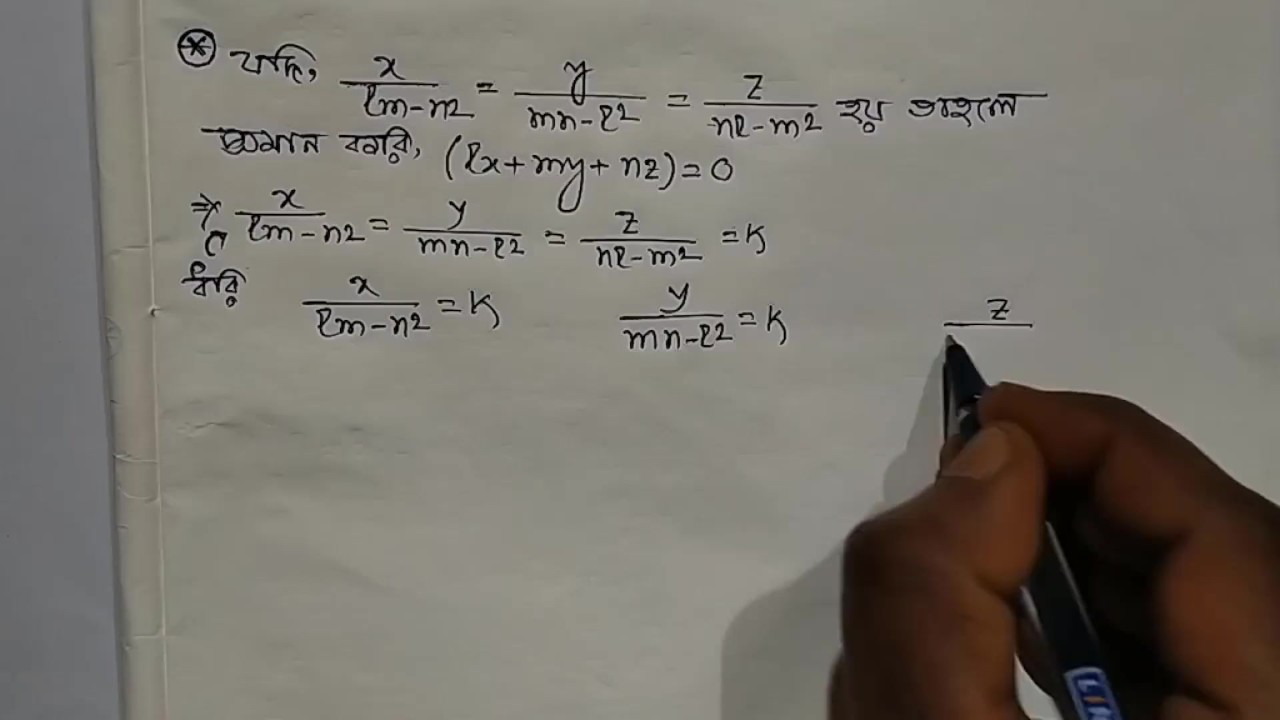 ⊛ যদি, x/(lm-n²) = y/(mn-l²) = z/(nl-m²) হয় তাহলে
প্রমান করি, (lx+my+nz)=0
⇒ x/(lm-n²) = y/(mn-l²) = z/(nl-m²) = K
ধরি x/(lm-n²) = K y/(mn-l²) = K z